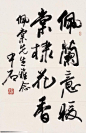 佩蘭意暖
棠棣花香
佩棠先生雅念
甲石